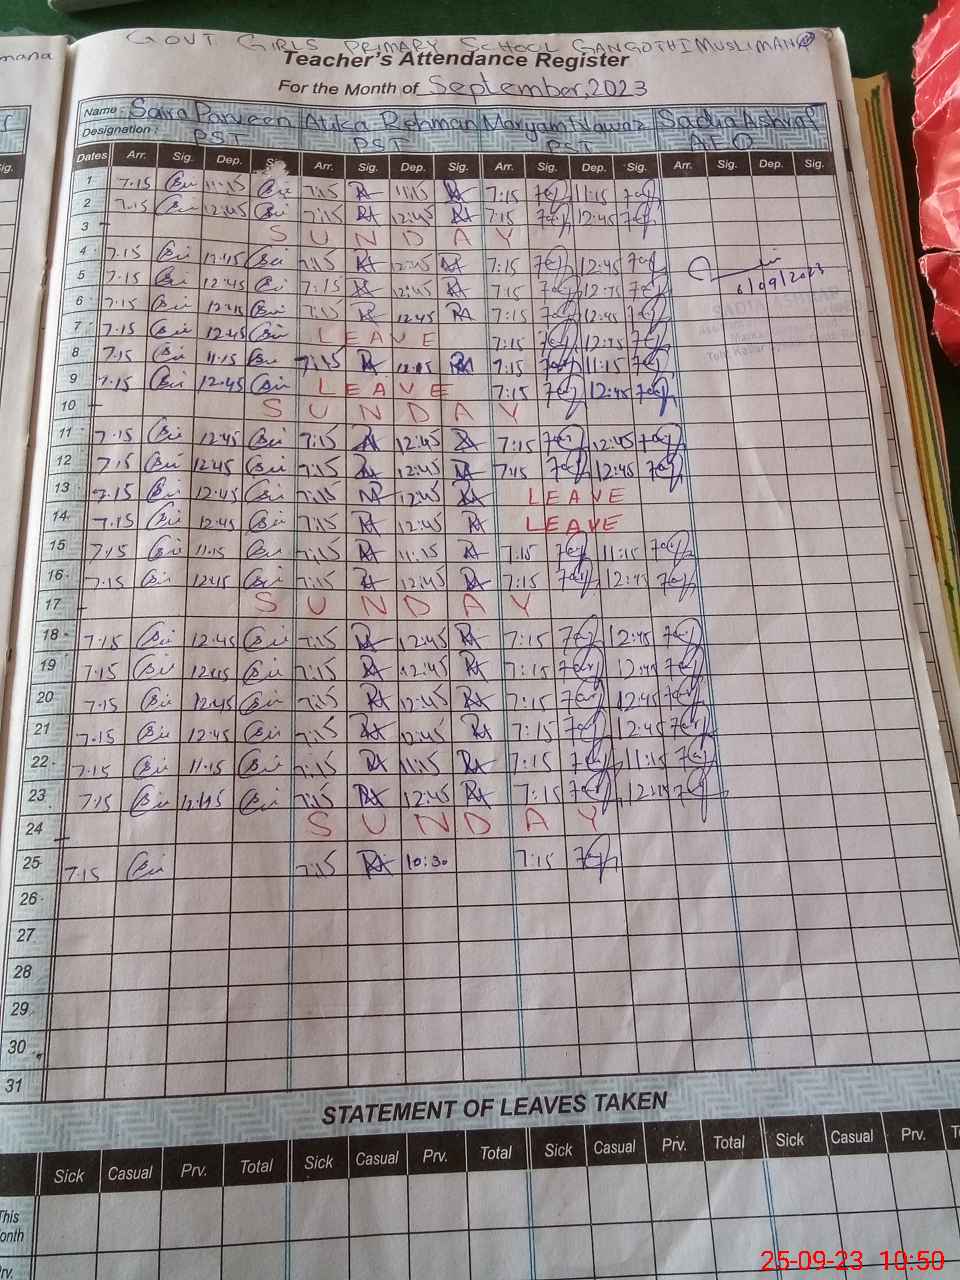 GOVT GIRLS PRIMARY SCHOOL GANGOTHI MUSLIMAN
Teacher's Attendance Register
For the Month of September, 2023
Name: Saira Parveen Atika Rehman Maryam Nawaz Sadia Ashraf
Designation: PST PST PST AEO
Dates Arr. Sig. Dep. Sig. Arr. Sig. Dep. Sig. Arr. Sig. Dep. Sig. Arr. Sig. Dep. Sig.
1 7.15 11:15 7:15 11:15 7:15 11:15
2 7.15 12:45 7:15 12:45 7:15 12:45
3 SUNDAY
4 7.15 12:45 7:15 12:45 7:15 12:45
5 7.15 12:45 7:15 12:45 7:15 12:45
6 7.15 12:45 7:15 12:45 7:15 12:45
6/09/2023
7 7.15 12:45 LEAVE 7:15 12:45
8 7.15 11:15 7:15 7:15 11:15
9 7.15 12:45 LEAVE 7:15 12:45
10 SUNDAY
11 7.15 12:45 7:15 12:45 7:15 12:45
12 7.15 12:45 7:15 12:45 7:15 12:45
13 7.15 12:45 7:15 12:45 LEAVE
14 7.15 12:45 7:15 12:45 LEAVE
15 7.15 11:15 7:15 11:15 7:15 11:15
16 7.15 12:45 7:15 12:45 7:15 12:45
17 SUNDAY
18 7.15 12:45 7:15 12:45 7:15 12:45
19 7.15 12:45 7:15 12:45 7:15 12:45
20 7.15 12:45 7:15 12:45 7:15 12:45
21 7.15 12:45 7:15 12:45 7:15 12:45
22 7.15 11:15 7:15 11:15 7:15 11:15
23 7.15 12:45 7:15 12:45 7:15 12:45
24 SUNDAY
25 7.15 7:15 10:30 7:15
26
27
28
29
30
31
STATEMENT OF LEAVES TAKEN
Sick Casual Prv. Total Sick Casual Prv. Total Sick Casual Prv. Total Sick Casual Prv.
This
25-09-23 10:50